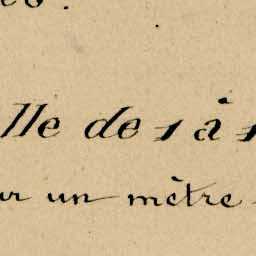 lle de 1 à 1
ur un mètre